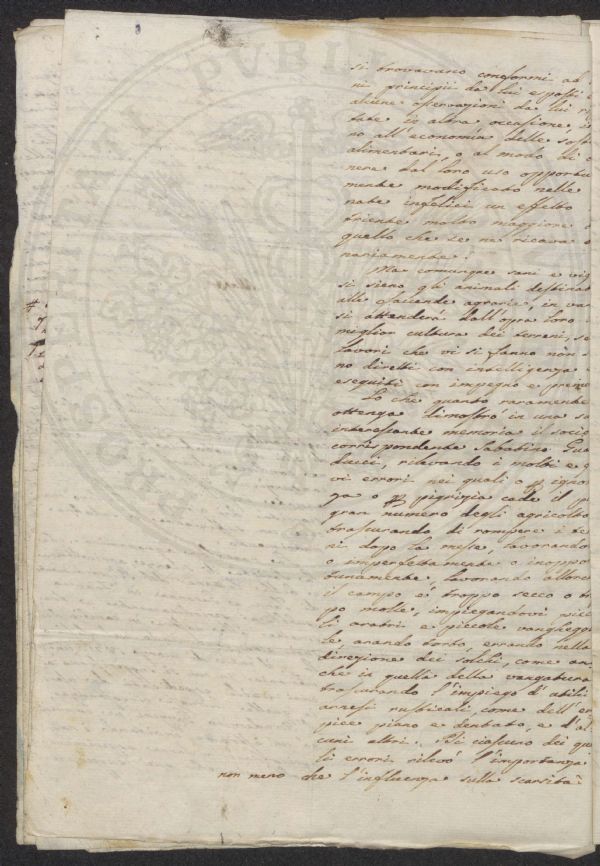 PROSPERITATI PVBLI
si trovavano conformi ad
ni principii da lui esposti
alcune osservazioni da lui
tate in altra occasione,
no all'economia delle sos
alimentari, o al modo di
nere dal loro uso opportu
mente modificato nelle
nate infelici un effetto
triente molto maggiore
quello che se ne ricava
nariamente.
Ma comunque sani e vig
si sieno gli animali destinat
alle faccende agrarie, in van
si attenderà dall'opra loro
miglior cultura dei terreni, se
lavori che vi si fanno non s
no diretti con intelligenza
eseguiti con impegno e premu
Lo che quanto raramente
ottenga dimostrò in una sa
interessante memoria il socio
corrispondente Sabatino Gua
ducci, rilevando i molti e g
vi errori nei quali o p igno
za o p pigrizia cade il p
gran numero degli agricolto
trascurando di rompere i te
ni dopo la messe, lavorando
o imperfettamente o inoppor
tunamente, lavorando allorc
il campo è troppo secco o tr
po molle, impiegandovi picc
li aratri e piccole vangheggio
le, arando torto, errando nella
direzione dei solchi, come an
che in quella della vangatura
trascurando l'impiego d'utili
arnesi rusticali come dell'er
pice piano e dentato, e d'al
cuni altri. Di ciascuno dei qua
li errori rilevò l'importanza
non meno che l'influenza sulla scarsità